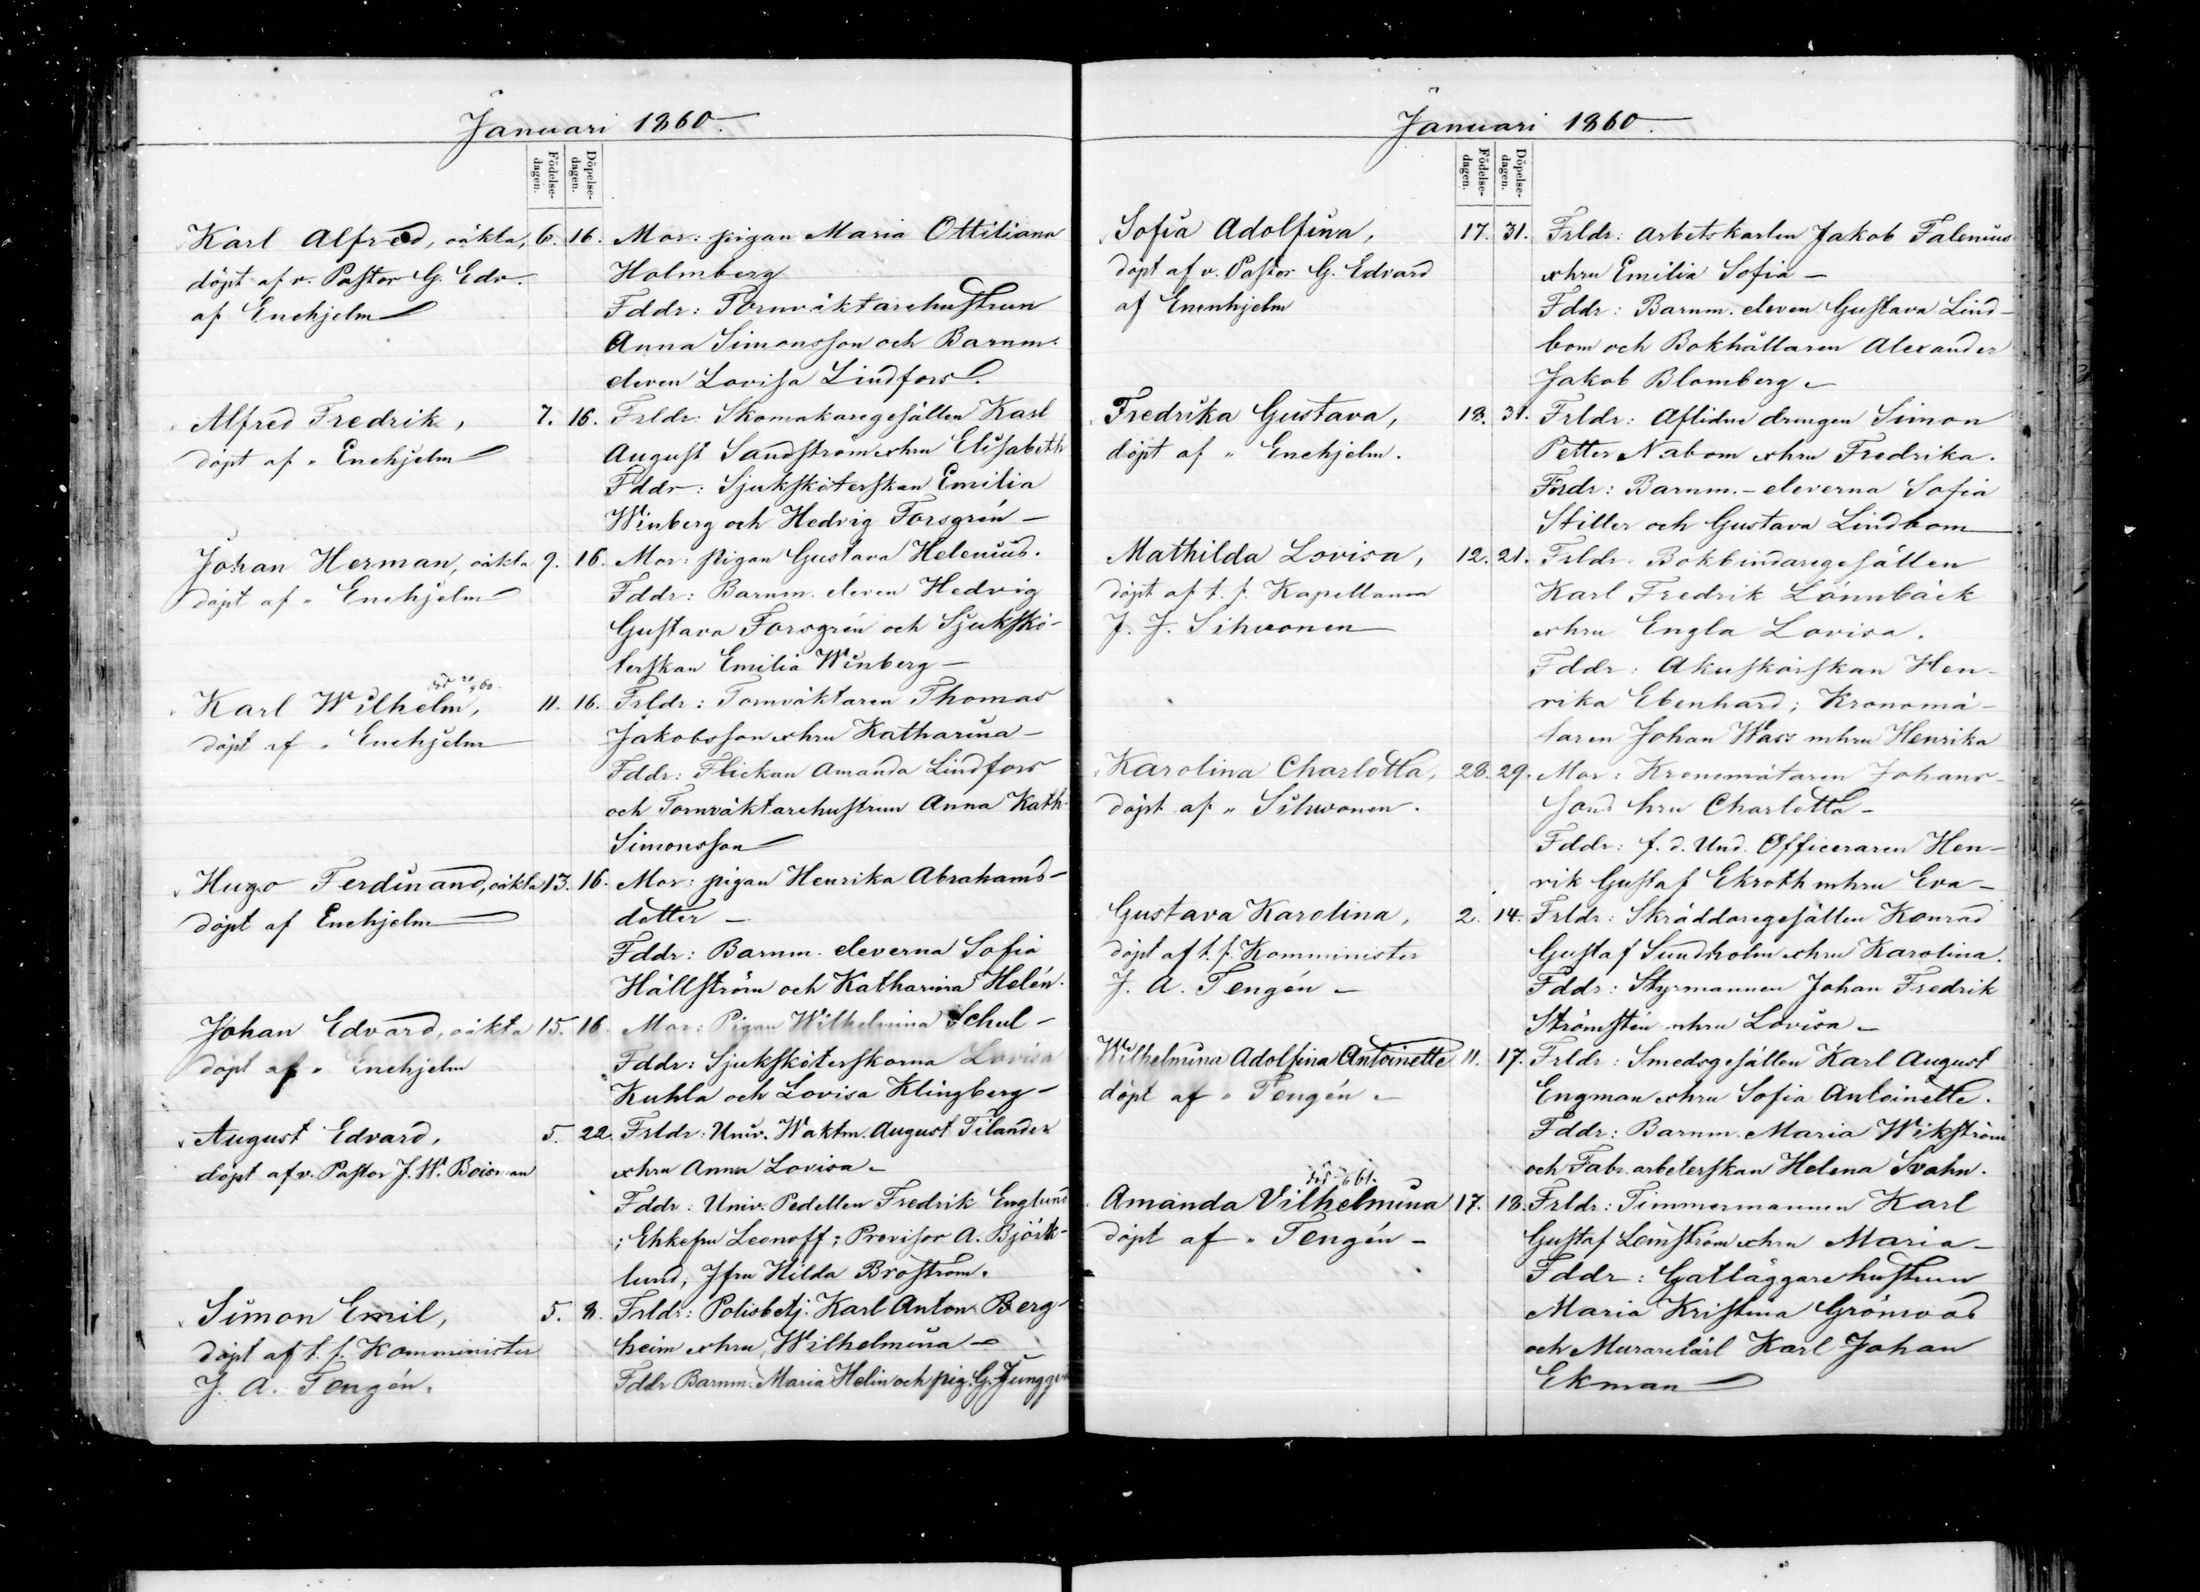 Januari 1860.
Födelse-dagen.
Döpelse-dagen.
Karl Alfred, oäkta, 6. 16. Mor: pigan Maria Ottiliana
döpt af v. Pastor G. Edv. Holmberg
af Enehjelm Fddr: Tornväktarehustrun
Anna Simonsson och Barnm.
eleven Lovisa Lindfors.
Alfred Fredrik, 7. 16. Frldr: Skomakaregesällen Karl
döpt af " Enehjelm August Sandström o hru Elisabeth
Fddr: Sjuksköterskan Emilia
Winberg och Hedvig Forsgrén –
Johan Herman, oäkta 9. 16. Mor: pigan Gustava Helenius.
döpt af " Enehjelm Fddr: Barnm. eleven Hedvig
Gustava Forsgrén och Sjukskö-
terskan Emilia Winberg –
död 60.
Karl Wilhelm, 11. 16. Frldr: Tornväktaren Thomas
döpt af " Enehjelm Jakobsson o hru Katharina –
Fddr: Flickan Amanda Lindfors
och Tornväktarehustrun Anna Kath.
Simonsson
Hugo Ferdinand, oäkta 13. 16. Mor: pigan Henrika Abrahams-
döpt af Enehjelm dotter –
Fddr: Barnm. eleverna Sofia
Hällström och Katharina Helén.
Johan Edvard, oäkta 15. 16. Mor: Pigan Wilhelmina Schul –
döpt af " Enehjelm Fddr: Sjuksköterskorna Lovisa
Kuhla och Lovisa Klingberg –
August Edvard, 5. 22. Frldr: Univ. Waktm. August Tilander
döpt af v. Pastor J. W. Boisman o hru Anna Lovisa –
Fddr: Univ. Pedellen Fredrik Englund
; Enkefru Leonoff; Provisor A. Björk-
lund, Jfru Hilda Broström.
Simon Emil, 5. 8. Frldr: Polisbetj. Karl Anton Berg-
döpt af t. f. Komminister heim o hru Wilhelmina –
J. A. Tengén. Fddr Barnm. Maria Helin och pig. G. Ljunggren
Januari 1860.
Födelse-dagen.
Döpelse-dagen.
Sofia Adolfina, 17. 31. Frldr: Arbetskarlen Jakob Falenius
döpt af v. Pastor G. Edvard o hru Emilia Sofia –
af Enenhjelm Fddr: Barnm. eleven Gustava Lind-
bom och Bokhållaren Alexander
Jakob Blomberg –
Fredrika Gustava, 18. 31. Frldr: Aflidne drengen Simon
döpt af " Enehjelm. Petter Nabom o hru Fredrika.
Fddr: Barnm. – eleverna Sofia
Stiller och Gustava Lindbom
Mathilda Lovisa, 12. 21. Frldr: Bokbindaregesällen
döpt af t. f. Kapellanen Karl Fredrik Lönnbäck
J. J. Sihvonen o hru Engla Lovisa.
Fddr: Akuskörskan Hen-
rika Ebenhard; Kronomä-
taren Johan Wass m hru Henrika
Karolina Charlotta, 28. 29. Mor: Kronomätaren Johans-
döpt af " Sihvonen. sons hru Charlotta –
Fddr: f. d. Und. Officeraren Hen-
rik Gustaf Ekroth m hru Eva –
Gustava Karolina, 2. 14. Frldr: Skräddaregesällen Konrad
döpt af t. f. Komminister Gustaf Sundholm o hru Karolina.
J. A. Tengén – Fddr: Styrmannen Johan Fredrik
Strömstén m hru Lovisa –
Wilhelmina Adolfina Antoinette 11. 17. Frldr: Smedsgesällen Karl August
döpt af " Tengén – Engman o hru Sofia Antoinette.
Fddr: Barnm. Maria Wikström
och Fabr. arbeterskan Helena Svahn.
död 61.
Amanda Vilhelmina 17. 18. Frldr: Timmermannen Karl
döpt af " Tengén – Gustaf Lemström o hru Maria –
Fddr: Gatläggarehustrun
Maria Kristina Grönroos
och Murarelärl Karl Johan
Ekman